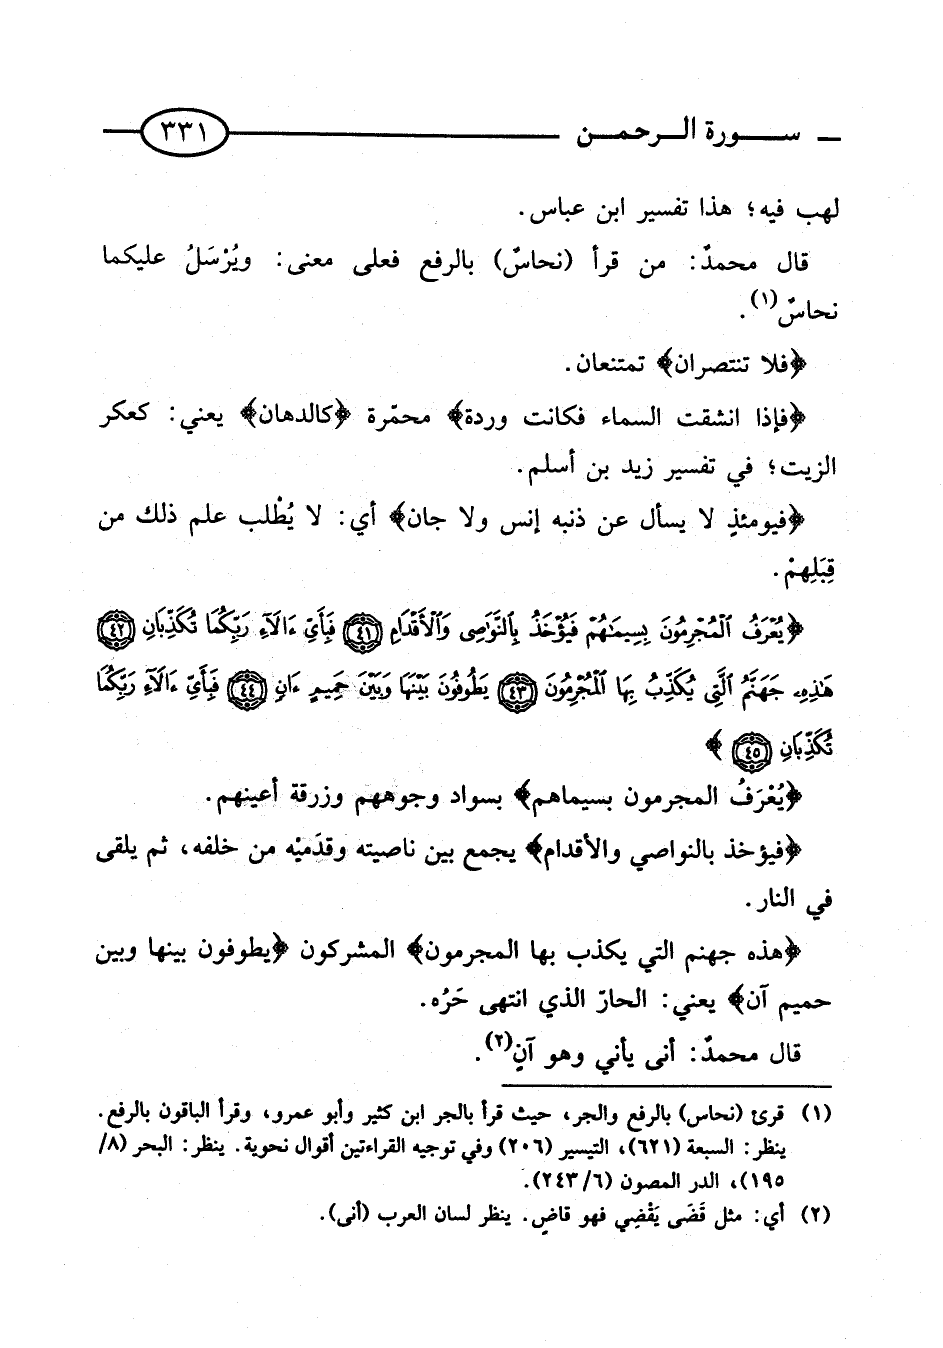 سورة الرحمن ٣٣١
لهب فيه؛ هذا تفسير ابن عباس.
قال محمدٌ: من قرأ (نحاسٌ) بالرفع فعلى معنى: ويُرْسَلُ عليكما
نحاسٌ(١).
﴿فلا تنتصران﴾ تمتنعان.
﴿فإذا انشقت السماء فكانت وردة﴾ محمّرة ﴿كالدهان﴾ يعني: كعكر
الزيت؛ في تفسير زيد بن أسلم.
﴿فيومئذٍ لا يسأل عن ذنبه إنس ولا جان﴾ أي: لا يُطْلب علم ذلك من
قِبَلِهمْ.
﴿يُعْرَفُ ٱلْمُجْرِمُونَ بِسِيمَٰهُمْ فَيُؤْخَذُ بِٱلنَّوَٰصِى وَٱلْأَقْدَامِ ٤١ فَبِأَىِّ ءَالَآءِ رَبِّكُمَا تُكَذِّبَانِ ٤٢
هَٰذِهِۦ جَهَنَّمُ ٱلَّتِى يُكَذِّبُ بِهَا ٱلْمُجْرِمُونَ ٤٣ يَطُوفُونَ بَيْنَهَا وَبَيْنَ حَمِيمٍ ءَانٍ ٤٤ فَبِأَىِّ ءَالَآءِ رَبِّكُمَا
تُكَذِّبَانِ ٤٥﴾
﴿يُعْرَفُ المجرمون بسيماهم﴾ بسواد وجوههم وزرقة أعينهم.
﴿فيؤخذ بالنواصي والأقدام﴾ يجمع بين ناصيته وقدَميْه من خلفه، ثم يلقى
في النار.
﴿هذه جهنم التي يكذب بها المجرمون﴾ المشركون ﴿يطوفون بينها وبين
حميم آن﴾ يعني: الحارّ الذي انتهى حَرُه.
قال محمدٌ: أنى يأني وهو آنٍ(٢).
(١) قرئ (نحاس) بالرفع والجر، حيث قرأ بالجر ابن كثير وأبو عمرو، وقرأ الباقون بالرفع.
ينظر: السبعة (٦٢١)، التيسير (٢٠٦) وفي توجيه القراءتين أقوال نحوية. ينظر: البحر (٨/
١٩٥)، الدر المصون (٦/٢٤٣).
(٢) أي: مثل قَضَى يَقْضِي فهو قاضٍ. ينظر لسان العرب (أنى).